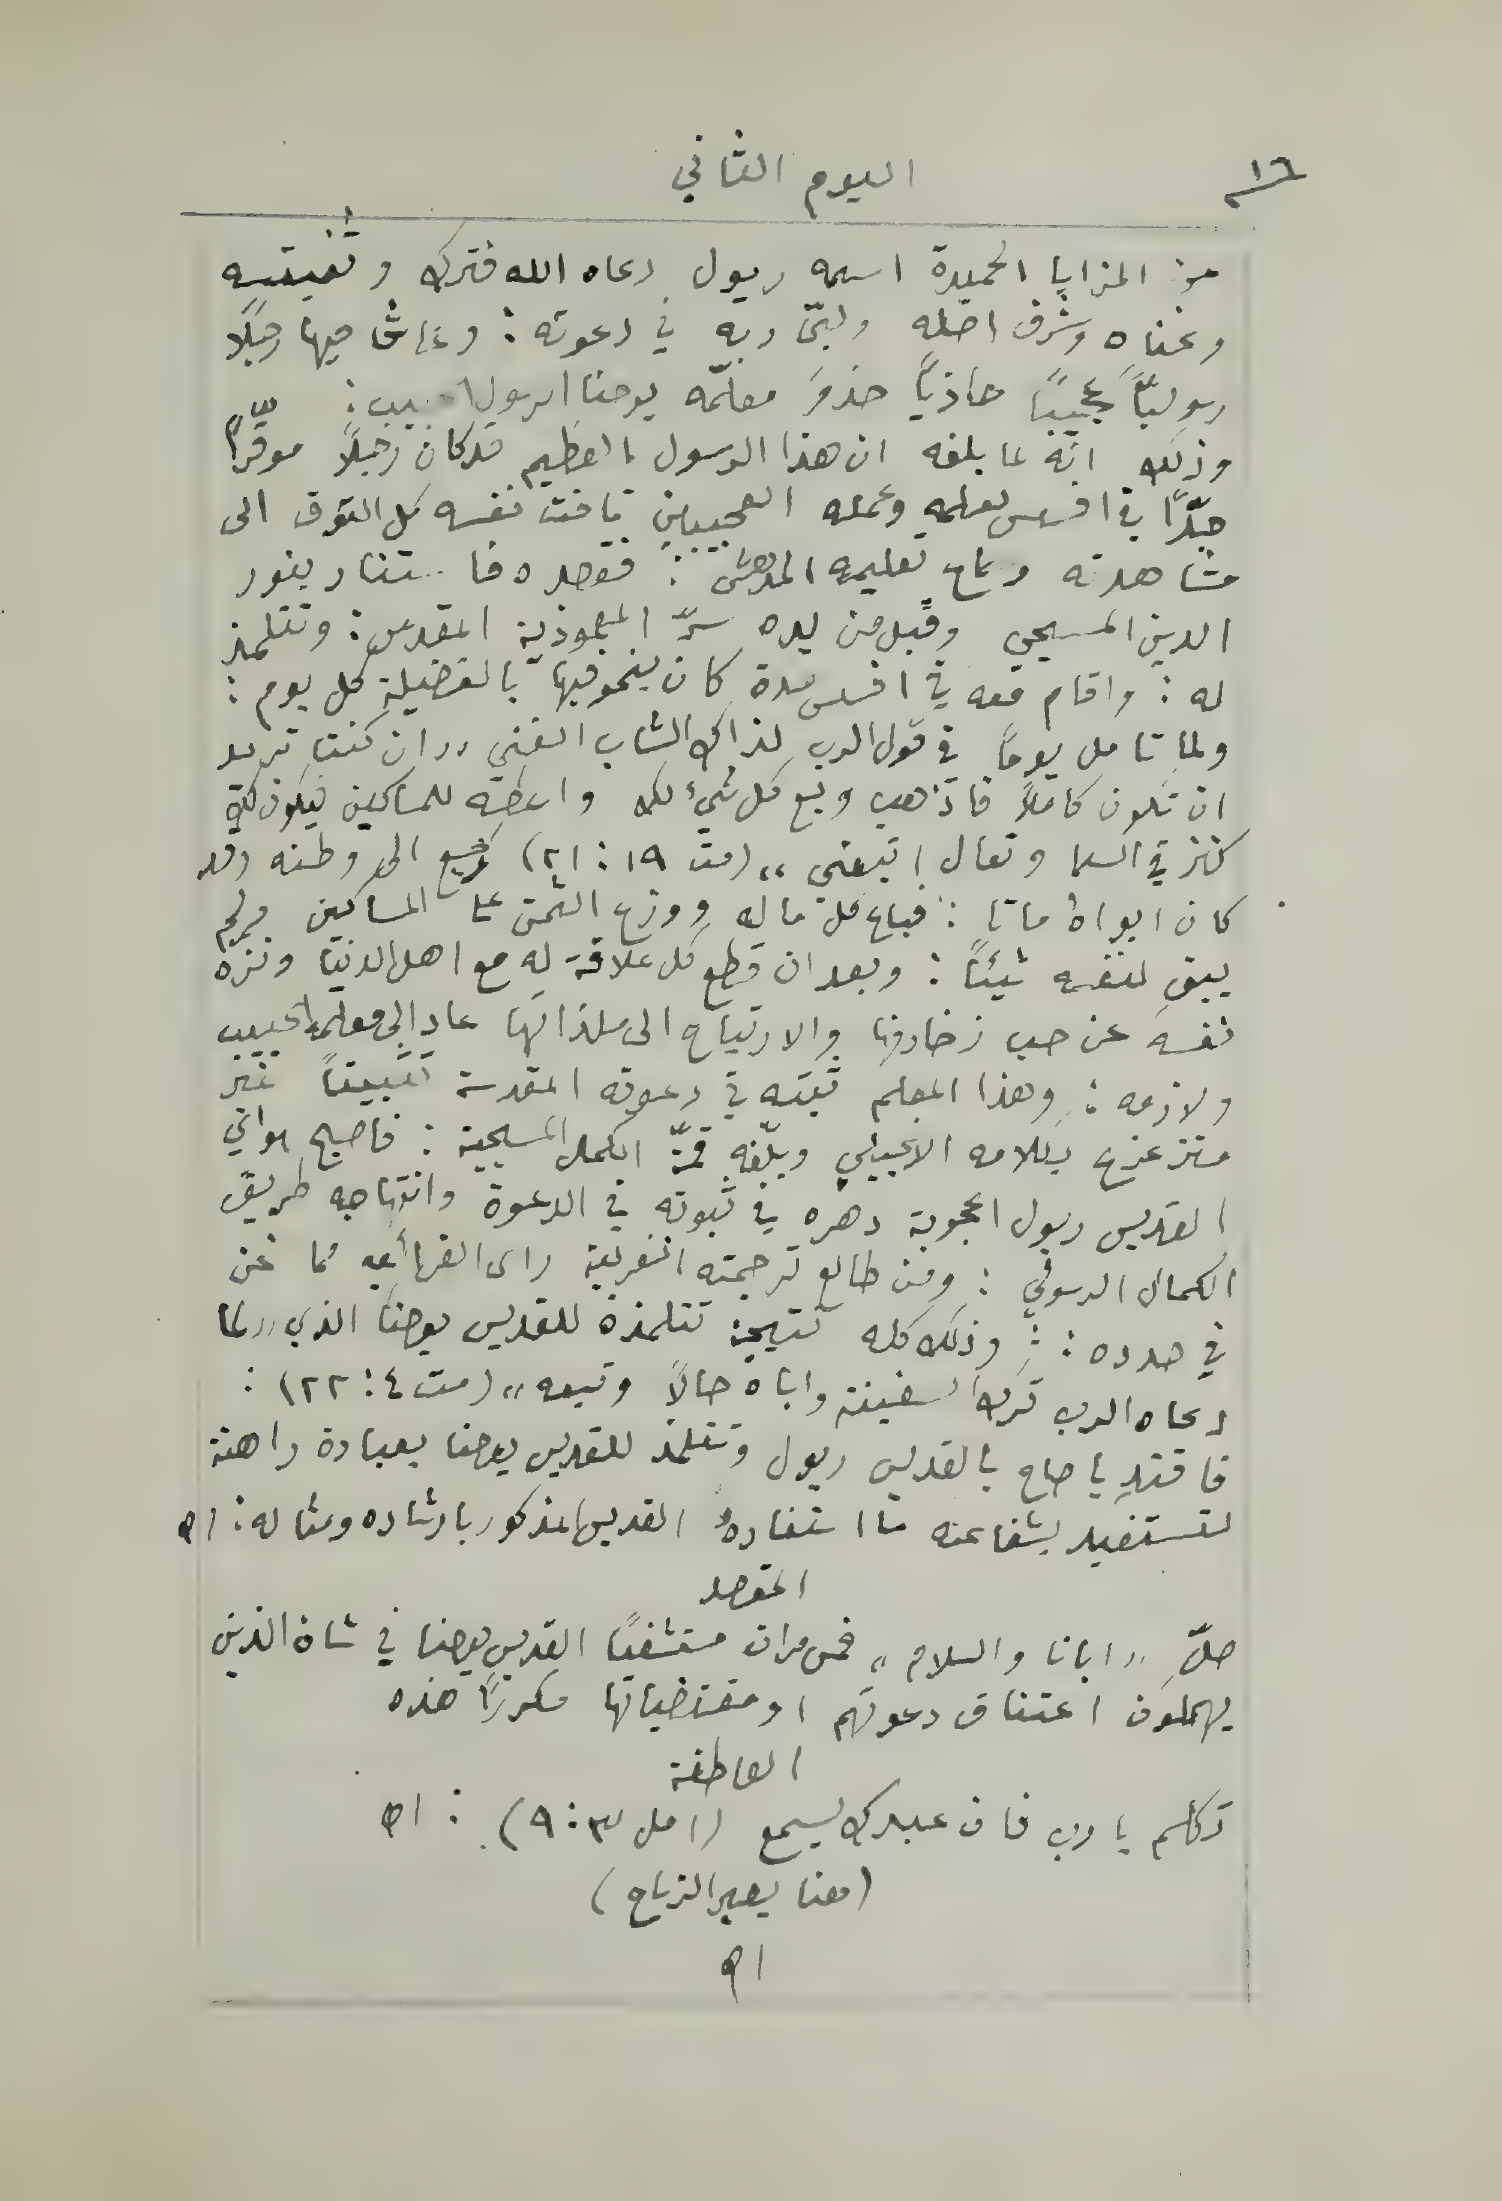 ١٦
اليوم الثاني
من المزايا الحميدة اسمه ريول دعاه الله فترك وثنيته
وغناه وشرف اصله ولبّى ربه في دعوته : وعاش فيها رجلًا
رسوليًّا عجيبًا حاذيًا حذوَ معلّمه يوحنا الرسول الحبيب :
وذلك انّه لما بلغه ان هذا الرسول العظيم قد كان رجلًا موقّرًا
جدًّا في افسس لعلمه وعمله العجيبين تاقت نفسه كل التوق الى
مشاهدته وسماع تعليمه المدهش : فقصده فاستنار بنور
الدين المسيحي وقَبِل من يده سرّ المعموذية المقدس : وتتلمذ
له : واقام معه في افسس مدة كان ينمو فيها بالفضيلة كل يوم :
ولما تامل يومًا في قول الرب لذاك الشاب الغني ,, ان كنت تريد
ان تكون كاملًا فاذهب وبع كل شيء لك واعطه للمساكين فيكون لك
كنز في السما وتعال اتبعني ,, (مت ١٩ : ٢١) رجع الى وطنه وقد
كان ابواه ماتا : فباع كل ماله ووزع الثمن على المساكين ولم
يبقِ لنفسه شيئًا : وبعد ان قطع كل علاقة له مع اهل الدنيا ونزه
نفسه عن حب زخارفها والارتياح الى ملذاتها عاد الى معلمه الحبيب
ولازمه : وهذا المعلم ثبّته في دعوته المقدسة تثبيتًا غير
متزعزع بكلامه الانجيلي وبلّغه قمّة الكمال المسيحية : فاصبح
القديس ريول اعجوبة دهره في ثبوته في الدعوة وانتهاجه طريق
الكمال الرسولي : ومن طالع ترجمته الغريبة راى الغرائب مما نحن
في صدده : وذلك كله نتيجة تتلمذه للقديس يوحنا الذي ,, لما
دعاه الرب ترك السفينة واباه حالًا وتبعه ,, (مت ٤ : ٢٢) :
فاقتدِ يا صاح بالقديس ريول وتتلمذ للقديس يوحنا بعبادة راهنة
لتستفيد بشفاعته ما استفاده القديس المذكور بارشاده ومثاله : اه
المقصد
صلِّ ,, ابانا والسلام ,, خمس مرات مستشفعًا القديس يوحنا في شان الذين
يهملون اعتناق دعوتهم او مقتضياتها مكررًا هذه
العاطفة
تكلم يا رب فان عبدك يسمع (امل ٣ : ٩) : اه
(هنا يصير الزياح)
اه